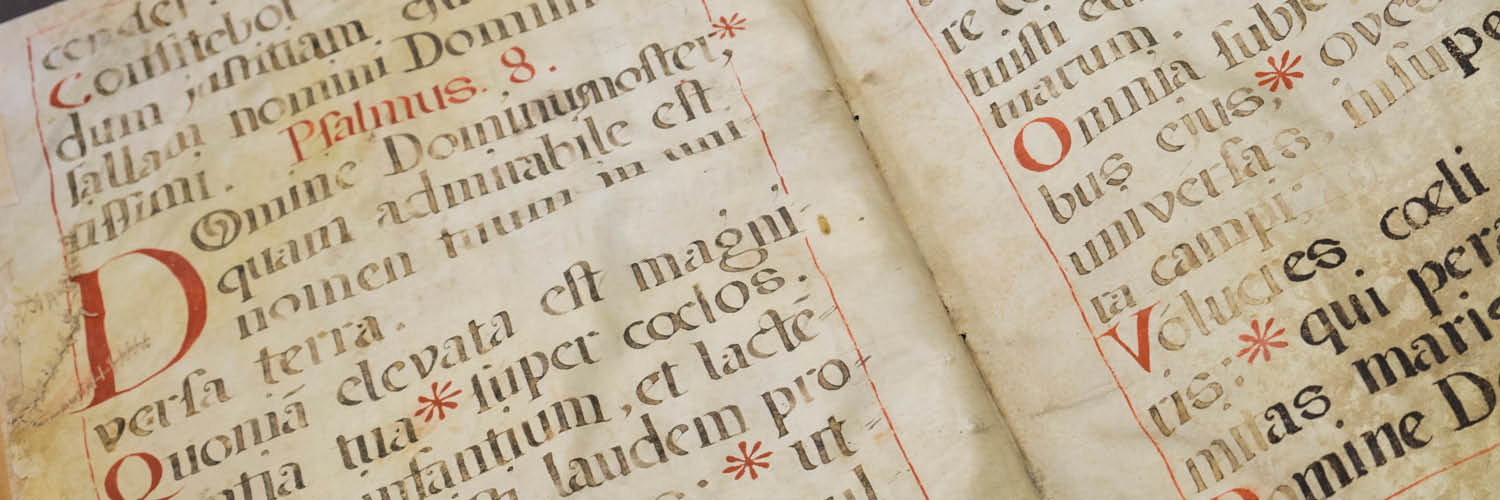 Confitebor
dum justitiam ejus
sallam nomini Domini
tissimi.
Psalmus. 8.
Domine Dominus noster, *
quam admirabile est
nomen tuum in uni
versa terra.
Quoniā elevata est magni-
tua * super cœlos.
infantium, et lacté-
laudem pro-
* ut
re
tuisti
nuarum. subje
Omnia
bus ejus, * oves
universas, insupe
ta campi.
Volucres cœli
ris: * qui pera
mitas maris
omine D